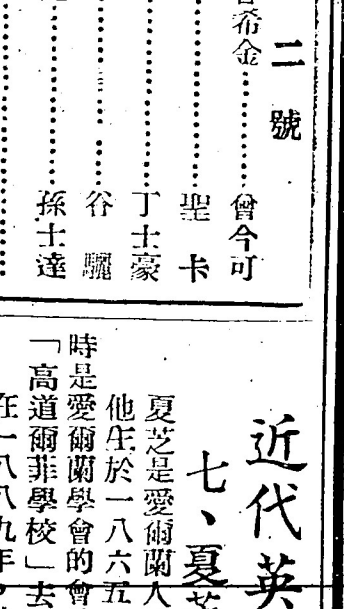 二號
希金……………曾今可
聖卡
丁士豪
谷驪
孫士達
近代英
七、夏芝
夏芝是愛爾蘭人
他生於一八六五
時是愛爾蘭學會的會
「高道爾菲學校」去
在一八八九年